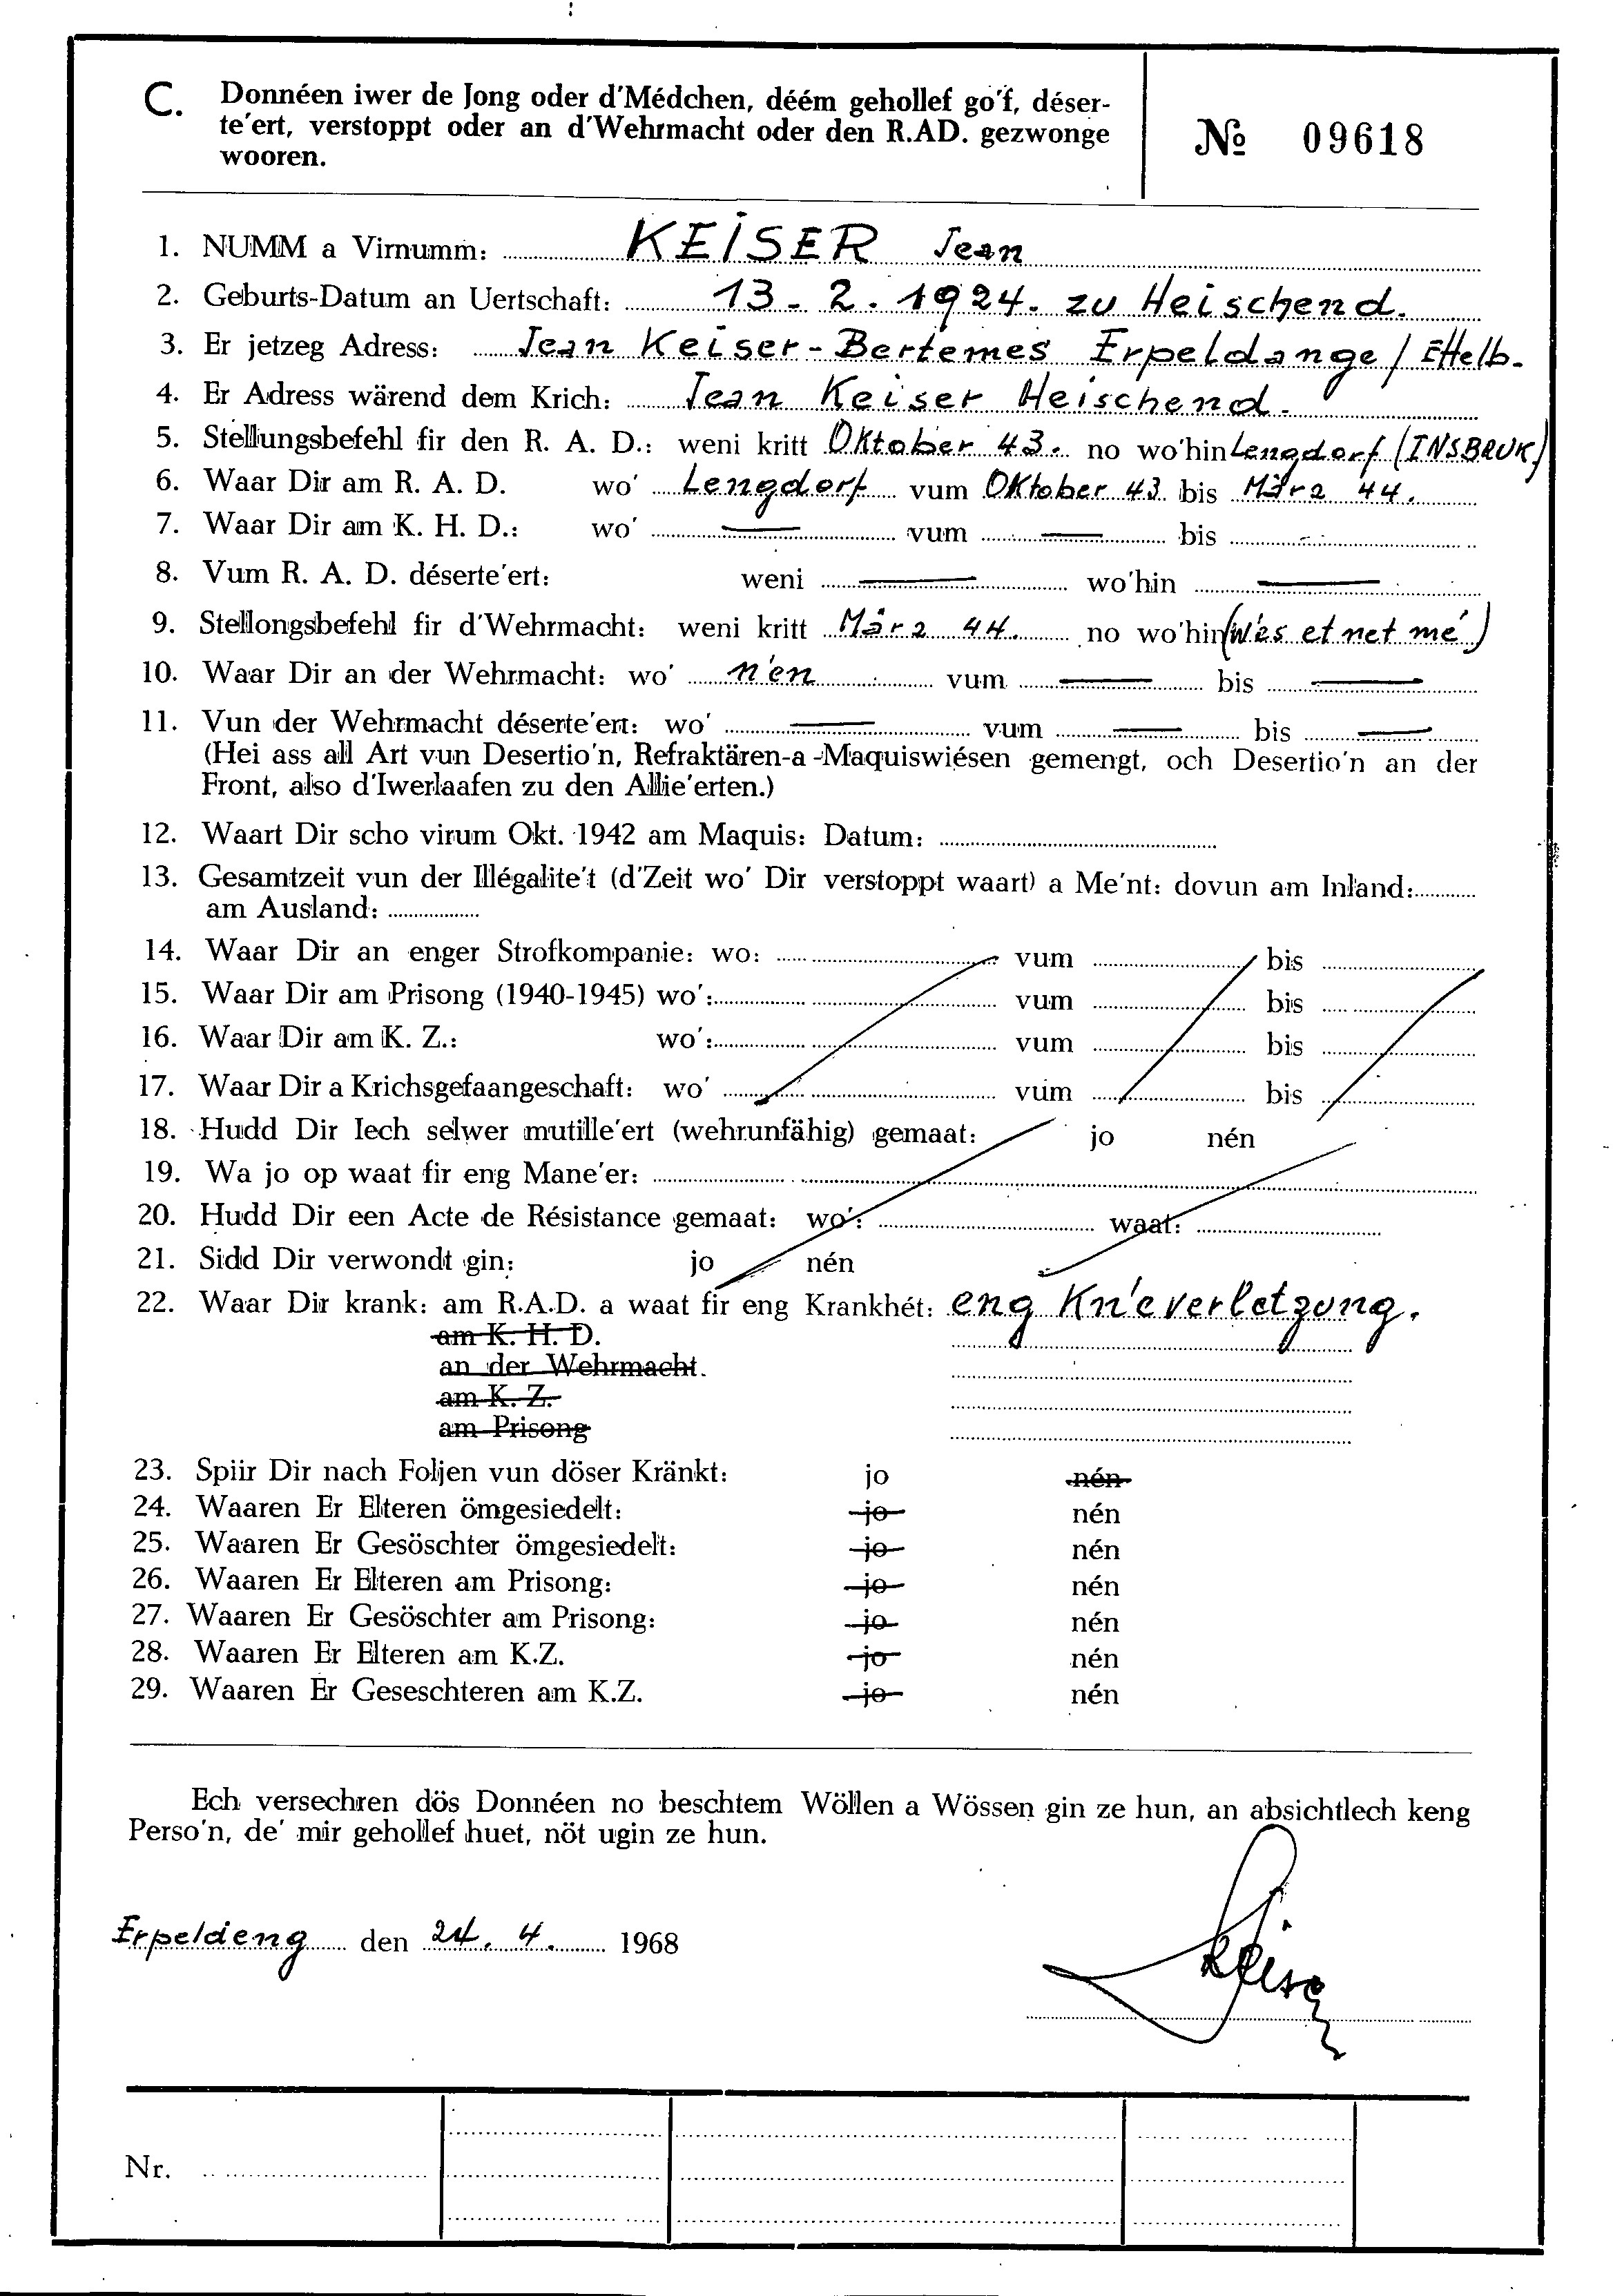 C. Donnéen iwer de Jong oder d'Médchen, déém gehollef go'f, déser-
te'ert, verstoppt oder an d'Wehrmacht oder den R.AD. gezwonge
wooren.
№ 09618
1. NUMM a Virnumm: KEISER Jean
2. Geburts-Datum an Uertschaft: 13-2.1924. zu Heischend.
3. Er jetzeg Adress: Jean Keiser-Bertemes Erpeldange / Ettelb.
4. Er Adress wärend dem Krich: Jean Keiser Heischend.
5. Stellungsbefehl fir den R. A. D.: weni kritt Oktober 43. no wo'hin Lengdorf (INSBRUK)
6. Waar Dir am R. A. D. wo' Lengdorf vum Oktober 43 bis März 44.
7. Waar Dir am K. H. D.: wo' — vum — bis -
8. Vum R. A. D. déserte'ert: weni — wo'hin —
9. Stellongsbefehl fir d'Wehrmacht: weni kritt März 44. no wo'hin (wés et net mé)
10. Waar Dir an der Wehrmacht: wo' n'en vum — bis —
11. Vun der Wehrmacht déserte'ert: wo' — vum — bis —
(Hei ass all Art vun Desertio'n, Refraktären-a-Maquiswiésen gemengt, och Desertio'n an der
Front, also d'Iwerlaafen zu den Allie'erten.)
12. Waart Dir scho virum Okt. 1942 am Maquis: Datum:
13. Gesamtzeit vun der Illégalite't (d'Zeit wo' Dir verstoppt waart) a Me'nt: dovun am Inland:
am Ausland:
14. Waar Dir an enger Strofkompanie: wo: vum bis
15. Waar Dir am Prisong (1940-1945) wo': vum bis
16. Waar Dir am K. Z.: wo': vum bis
17. Waar Dir a Krichsgefaangeschaft: wo' vum bis
18. Hudd Dir Iech selwer mutille'ert (wehrunfähig) gemaat: jo nén
19. Wa jo op waat fir eng Mane'er:
20. Hudd Dir een Acte de Résistance gemaat: wo': waat:
21. Sidd Dir verwondt gin: jo nén
22. Waar Dir krank: am R.A.D. a waat fir eng Krankhét: eng Kn'everletzung.
am K. H. D.
an der Wehrmacht.
am K. Z.
am Prisong
23. Spiir Dir nach Foljen vun döser Kränkt: jo nén
24. Waaren Er Elteren ömgesiedelt: jo nén
25. Waaren Er Gesöschter ömgesiedelt: jo nén
26. Waaren Er Elteren am Prisong: jo nén
27. Waaren Er Gesöschter am Prisong: jo nén
28. Waaren Er Elteren am K.Z. jo nén
29. Waaren Er Geseschteren am K.Z. jo nén
Ech versechren dös Donnéen no beschtem Wöllen a Wössen gin ze hun, an absichtlech keng
Perso'n, de' mir gehollef huet, nöt ugin ze hun.
Erpeldeng den 24. 4. 1968
Keiser
Nr.